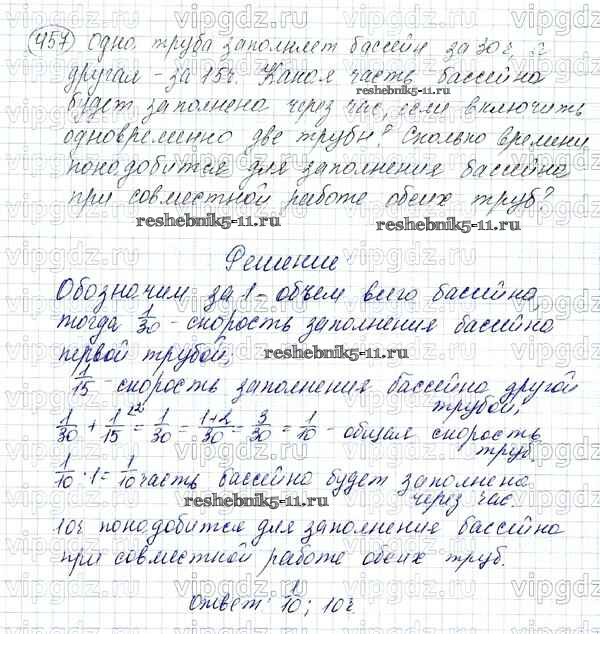 457 Одна труба заполняет бассейн за 30 ч, а
другая - за 15ч. Какая часть бассейна
reshebnik5-11.ru
будет заполнена через час, если включить
одновременно две трубы? Сколько времени
понадобится для заполнения бассейна
при совместной работе обеих труб?
reshebnik5-11.ru reshebnik5-11.ru
Решение
Обозначим за 1 - объем всего бассейна,
тогда 1/30 - скорость заполнения бассейна
первой трубой,
reshebnik5-11.ru
1/15 - скорость заполнения бассейна другой
трубой,
1/30 + 1/15 = 1/30 = 1+2/30 = 3/30 = 1/10 - общая скорость
труб
1/10 · 1 = 1/10 часть бассейна будет заполнена
через час.
reshebnik5-11.ru
10ч понадобится для заполнения бассейна
при совместной работе обеих труб.
Ответ: 1/10; 10ч
vipgdz.ru